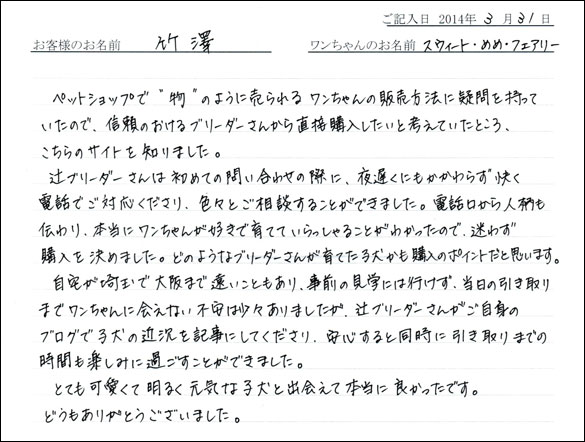 ご記入日 2014年 3 月 31 日
お客様のお名前 竹澤 ワンちゃんのお名前 スウィート・めめ・フェアリー
ペットショップで "物" のように売られる ワンちゃんの販売方法に疑問を持って
いたので、信頼のおけるブリーダーさんから直接購入したいと考えていたところ、
こちらのサイトを知りました。
辻ブリーダーさんは初めての問い合わせの際に、夜遅くにもかかわらず快く
電話でご対応くださり、色々とご相談することができました。電話口から人柄も
伝わり、本当にワンちゃんが好きで育てていらっしゃることがわかったので、迷わず
購入を決めました。どのようなブリーダーさんが育てた子犬かも購入のポイントだと思います。
自宅が埼玉で大阪まで遠いこともあり、事前の見学には行けず、当日の引き取り
までワンちゃんに会えない不安は少々ありましたが、辻ブリーダーさんがご自身の
ブログで子犬の近況を記事にしてくださり、安心すると同時に引き取りまでの
時間も楽しみに過ごすことができました。
とても可愛くて明るく元気な子犬と出会えて本当に良かったです。
どうもありがとうございました。